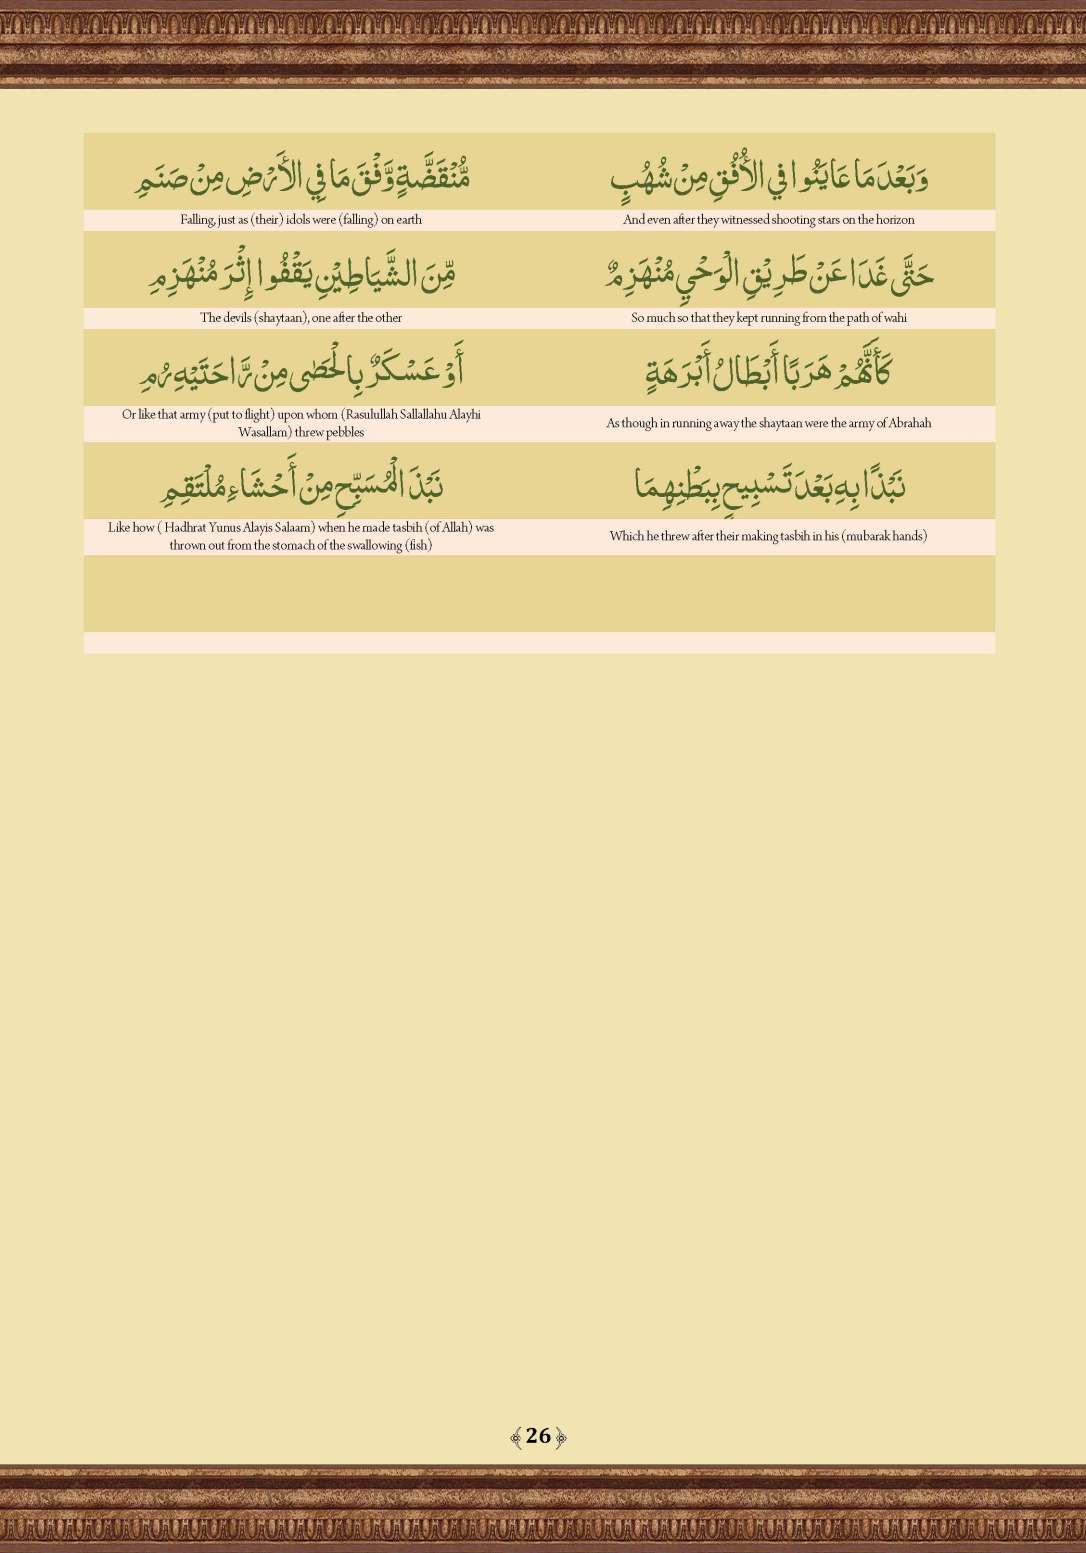 وَبَعْدَ مَا عَايَنُوا فِي الْأُفُقِ مِنْ شُهُبٍ
مُّنْقَضَّةٍ وَّفْقَ مَا فِي الْأَرْضِ مِنْ صَنَمِ
And even after they witnessed shooting stars on the horizon
Falling, just as (their) idols were (falling) on earth
حَتَّى غَدَا عَنْ طَرِيْقِ الْوَحْيِ مُنْهَزِمٌ
مِّنَ الشَّيَاطِيْنِ يَقْفُوا إِثْرَ مُنْهَزِمِ
So much so that they kept running from the path of wahi
The devils (shaytaan), one after the other
كَأَنَّهُمْ هَرَبًا أَبْطَالُ أَبْرَهَةٍ
أَوْ عَسْكَرٌ بِالْحَصٰى مِنْ رَّاحَتَيْهِ رُمِ
As though in running away the shaytaan were the army of Abrahah
Or like that army (put to flight) upon whom (Rasulullah Sallallahu Alayhi
Wasallam) threw pebbles
نَبْذًا بِهِ بَعْدَ تَسْبِيحٍ بِبَطْنِهِمَا
نَبْذَ الْمُسَبِّحِ مِنْ أَحْشَاءِ مُلْتَقِمِ
Which he threw after their making tasbih in his (mubarak hands)
Like how ( Hadhrat Yunus Alayis Salaam) when he made tasbih (of Allah) was
thrown out from the stomach of the swallowing (fish)
26